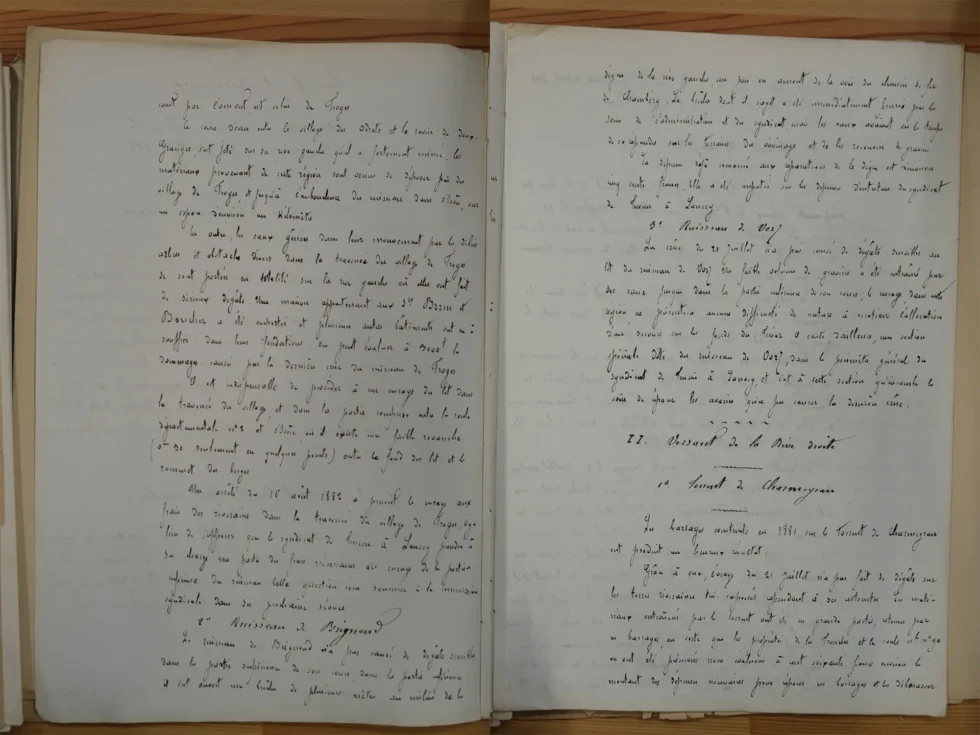 cout par l'amont est celui de Froges
le cône situé entre le village des Adrets et le ravin de deux
Granges, s'est jeté sur sa rive gauche qu'il a fortement minée les
matériaux provenant de cette région sont venus se déposer près du
village de Froges et jusqu'à l'embouchure du ruisseau dans l'Isère, sur
un espace d'environ un Kilomètre
En outre, les eaux gênées dans leur mouvement par les débris
arbres et obstacles divers dans la traversée du village de Froges
se sont portées en totalité sur la rive gauche où elles ont fait
de sérieux dégâts Une maison appartenant aux Srs et
a été et plusieurs autres bâtiments ont eu à
souffrir dans leurs fondations on peut évaluer à 3000f le
dommage causé par la dernière crue du ruisseau de Froges
Il est indispensable de procéder à un curage du lit dans
la traversée du village, et dans la partie comprise entre la route
départementale n° 2 et l'Isère, où il existe une faible revanche
(0m 30 seulement en quelques points) entre le fond du lit et le
sommet des berges
Un arrêté du 16 août 1882 a prescrit le curage aux
frais des riverains dans la traversée du village de Froges Il y a
lieu de supposer que le syndicat de à Lancey prendra à
sa charge une partie des frais nécessaires au curage de la portion
inférieure du ruisseau Cette question sera soumise à la Commission
syndicale dans sa prochaine séance
2° Ruisseau de Brignoud
Le ruisseau de Brignoud n'a pas causé de dégâts sensibles
dans la partie supérieure de son cours dans la partie inférieure
il s'est ouvert une brèche de plusieurs mètres au milieu de la
digue de la rive gauche un peu en amont de la voie du chemin de fer
de Chambéry. La brèche dont il s'agit a été immédiatement fermée par les
soins de l'administration et du syndicat, mais les eaux avaient eu le temps
de se répandre sur les terrains du voisinage et de les recouvrir de graviers
La dépense déjà consacrée aux réparations de la digue est d'environ
cinq cents francs. Elle a été imputée sur les dépenses d'entretien du syndicat
de à Lancey
3° Ruisseau de Vorz
La crue du 21 Juillet n'a pas causé de dégâts sensibles au
lit du ruisseau de Vorz Un faible volume de graviers a été entraîné par
les eaux jusque dans la partie inférieure de son cours; le curage dans cette
région ne présentera aucune difficulté de nature à motiver l'allocation
d'un secours sur les fonds du Trésor Il existe d'ailleurs, une section
spéciale dite du ruisseau de Vorz, dans le périmètre général du
syndicat de à Lancey, et c'est à cette section qu'incombe le
soin de réparer les avaries qu'a pu causer la dernière crue.
II. Versant de la Rive droite
1° Torrent de Chameyran
Les barrages construits en 1881 sur le Torrent de Chameyran
ont produit un heureux résultat.
Grâce à eux, l'orage du 21 Juillet n'a pas fait de dégâts sur
les terres riveraines très exposées cependant à ses atteintes Les maté-
riaux entraînés par le torrent ont été en grande partie, retenus par
ces barrages, en sorte que les propriétés de la et la route n° 90
en ont été préservées nous estimons à cent soixante francs environ le
montant des dépenses nécessaires pour réparer ces barrages et les débarrasser